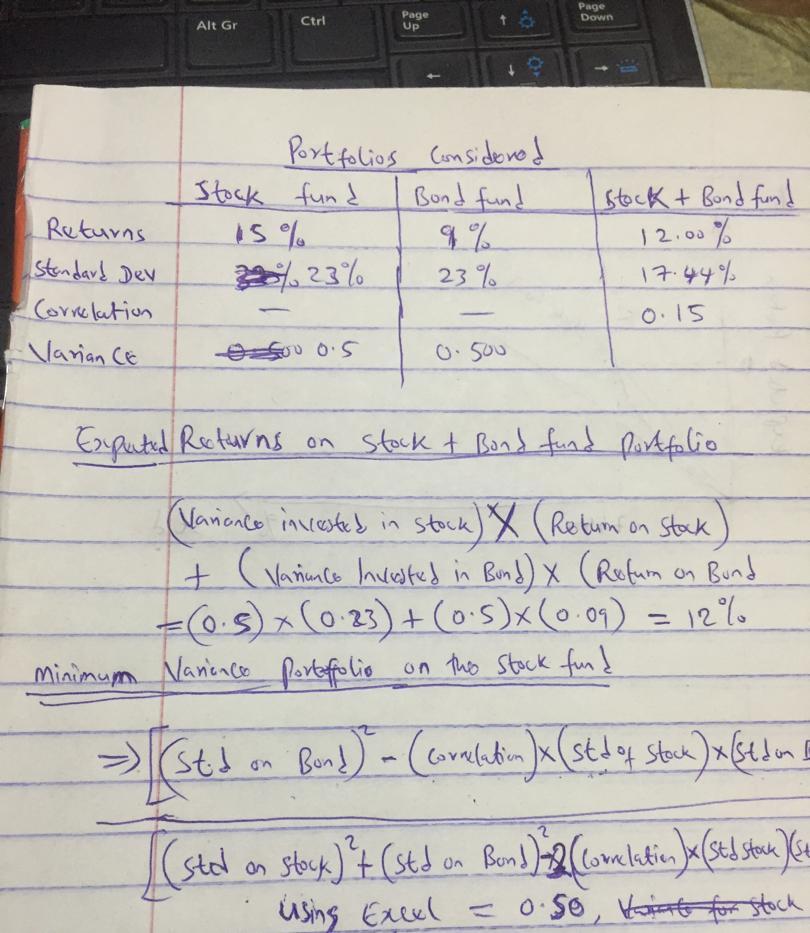 Alt Gr Ctrl Page Up Page Down
Portfolios Considered
Stock fund Bond fund Stock + Bond fund
Returns 15% 9% 12.00%
Standard Dev 23% 23% 17.44%
Correlation — — 0.15
Variance 0.5 0.500
Expected Returns on Stock + Bond fund Portfolio
(Variance invested in stock) X (Return on stock)
+ (Variance Invested in Bond) X (Return on Bond
= (0.5) x (0.23) + (0.5) x (0.09) = 12%
Minimum Variance Porteffolio on the Stock fund
⇒ [(Std on Bond)² - (Correlation) x (Std of Stock) x (Std on
[(Std on stock)² + (Std on Bond)² - 2 (Correlation) x (Std stock)
Using Excel = 0.50,